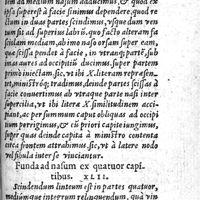 um ad medium nasum adducimus, & quod ex
ipso superest à facie sinimus dependere, quod re
ctum in duas partes scindimus, usque dum ven
tum sit ad superius labrũ. quo facto alteram fa
sciolam mediam, ab imo naso orsam super eam,
quæ scissa pendet à facie, in utranq; partē, sub
aures ad occipitium ducimus. super partem
primò iniectam. sic, ut ibi X. literam repræsen-
tet, ministrõq; tradimus. deinde partes scissas à
facie convertimus ab utraque parte nasi inter
supercilia, ut ibi litera X similitudinem acci-
piant, ac per summum caput obliquas ad occipi
tium perrigimus, & cũ priori capite iungimus,
super quæ deinde capita à ministro contenta
circa frontem attrahimus. sic, ut à latere nodo
vel fibula inter se vinciantur.
Funda ad nasum ex quatuor capi-
tibus. XLII.
Scindendum linteum est in partes quatuor,
medium que integrum relinquendum, quà vin